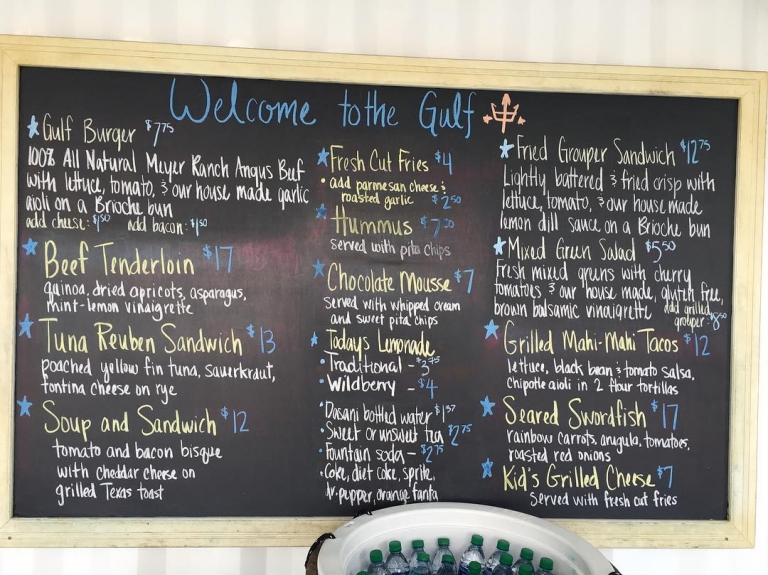 Welcome to the Gulf
Gulf Burger $7.75
100% All Natural Meyer Ranch Angus Beef
with lettuce, tomato, & our house made garlic
aioli on a Brioche bun
add cheese: $1.50 add bacon: $1.50
Beef Tenderloin $17
quinoa, dried apricots, asparagus,
mint-lemon vinaigrette
Tuna Reuben Sandwich $13
poached yellow fin tuna, sauerkraut,
fontina cheese on rye
Soup and Sandwich $12
tomato and bacon bisque
with cheddar cheese on
grilled Texas toast
Fresh Cut Fries $4
• add parmesan cheese &
roasted garlic $2.50
Hummus
served with pita chips
Chocolate Mousse $7
served with whipped cream
and sweet pita chips
Todays Lemonade
• Traditional -
• Wildberry - $4
• Dasani bottled water
• Sweet or unsweet tea $2.75
• Fountain soda - $2.75
• Coke, diet coke, sprite,
dr. pepper, orange fanta
Fried Grouper Sandwich $12.75
Lightly battered & fried crisp with
lettuce, tomato, & our house made
lemon dill sauce on a Brioche bun
Mixed Green Salad $5.50
Fresh mixed greens with cherry
tomatoes & our house made, gluten free,
brown balsamic vinaigrette add grilled
grouper:
Grilled Mahi-Mahi Tacos $12
lettuce, black bean & tomato salsa,
chipotle aioli in 2 flour tortillas
Seared Swordfish $17
rainbow carrots, arugula, tomatoes,
roasted red onions
Kid's Grilled Cheese $7
Served with fresh cut fries